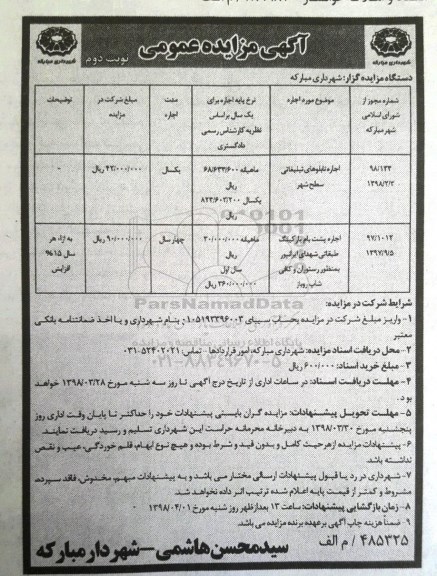 آگهی مزایده عمومی
نوبت دوم
شهرداری مبارکه
شهرداری مبارکه
دستگاه مزایده گزار: شهرداری مبارکه
شماره مجوز از شورای اسلامی شهر مبارکه
موضوع مورد اجاره
نرخ پایه اجاره برای یک سال براساس نظریه کارشناس رسمی دادگستری
مدت اجاره
مبلغ شرکت در مزایده
توضیحات
۹۸/۱۳۳
۱۳۹۸/۲/۲
اجاره تابلوهای تبلیغاتی سطح شهر
ماهیانه ۶۸/۶۳۳/۶۰۰ ریال
یکسال ۸۲۳/۶۰۳/۲۰۰ ریال
یکسال
۴۲/۰۰۰/۰۰۰ ریال
-
۹۷/۱۰۱۲
۱۳۹۷/۹/۵
اجاره پشت بام پارکینگ طبقاتی شهدای ایرانپور بمنظور رستوران و کافی شاپ روباز
ماهیانه ۳۰/۰۰۰/۰۰۰ ریال
سال اول ۳۶۰/۰۰۰/۰۰۰ ریال
چهار سال
۹۰/۰۰۰/۰۰۰ ریال
به ازاء هر سال ۱۵% افزایش
شرایط شرکت در مزایده:
۱- واریز مبلغ شرکت در مزایده بحساب سیبای ۰۱۰۵۱۹۳۳۹۶۰۰۳ بنام شهرداری و یا اخذ ضمانتنامه بانکی
معتبر
۲- محل دریافت اسناد مزایده: شهرداری مبارکه، امور قراردادها - تماس: ۵۲۴۰۲۰۲۱-۰۳۱
۳- مبلغ خرید اسناد: ۶۰۰/۰۰۰ ریال
۴- مهلت دریافت اسناد: در ساعات اداری از تاریخ درج آگهی تا روز سه شنبه مورخ ۱۳۹۸/۰۳/۲۸ خواهد
بود.
۵- مهلت تحویل پیشنهادات: مزایده گران بایستی پیشنهادات خود را حداکثر تا پایان وقت اداری روز
پنجشنبه مورخ ۱۳۹۸/۰۳/۳۰ به دبیرخانه محرمانه حراست این شهرداری تسلیم و رسید دریافت نمایند.
۶- پیشنهادات مزایده از هر حیث کامل و بدون قید و شرط بوده و هیچ نوع ابهام، قلم خوردگی، عیب و نقص
نداشته باشد.
۷- شهرداری در رد یا قبول پیشنهادات ارسالی مختار می باشد و به پیشنهادات مبهم، مخدوش، فاقد سپرده،
مشروط و کمتر از قیمت پایه اعلام شده ترتیب اثر داده نخواهد شد.
۸- زمان بازگشایی پیشنهادات: ساعت ۱۳ بعدازظهر روز شنبه مورخ ۱۳۹۸/۰۴/۰۱
۹- ضمناً هزینه چاپ آگهی برعهده برنده مزایده می باشد.
۴۸۵۳۲۵ / م الف
سید محسن هاشمی - شهردار مبارکه
ParsNamadData
پایگاه اطلاع رسانی مناقصه و مزایده
۰۲۱-۸۸۳۴۹۶۷۰-۵